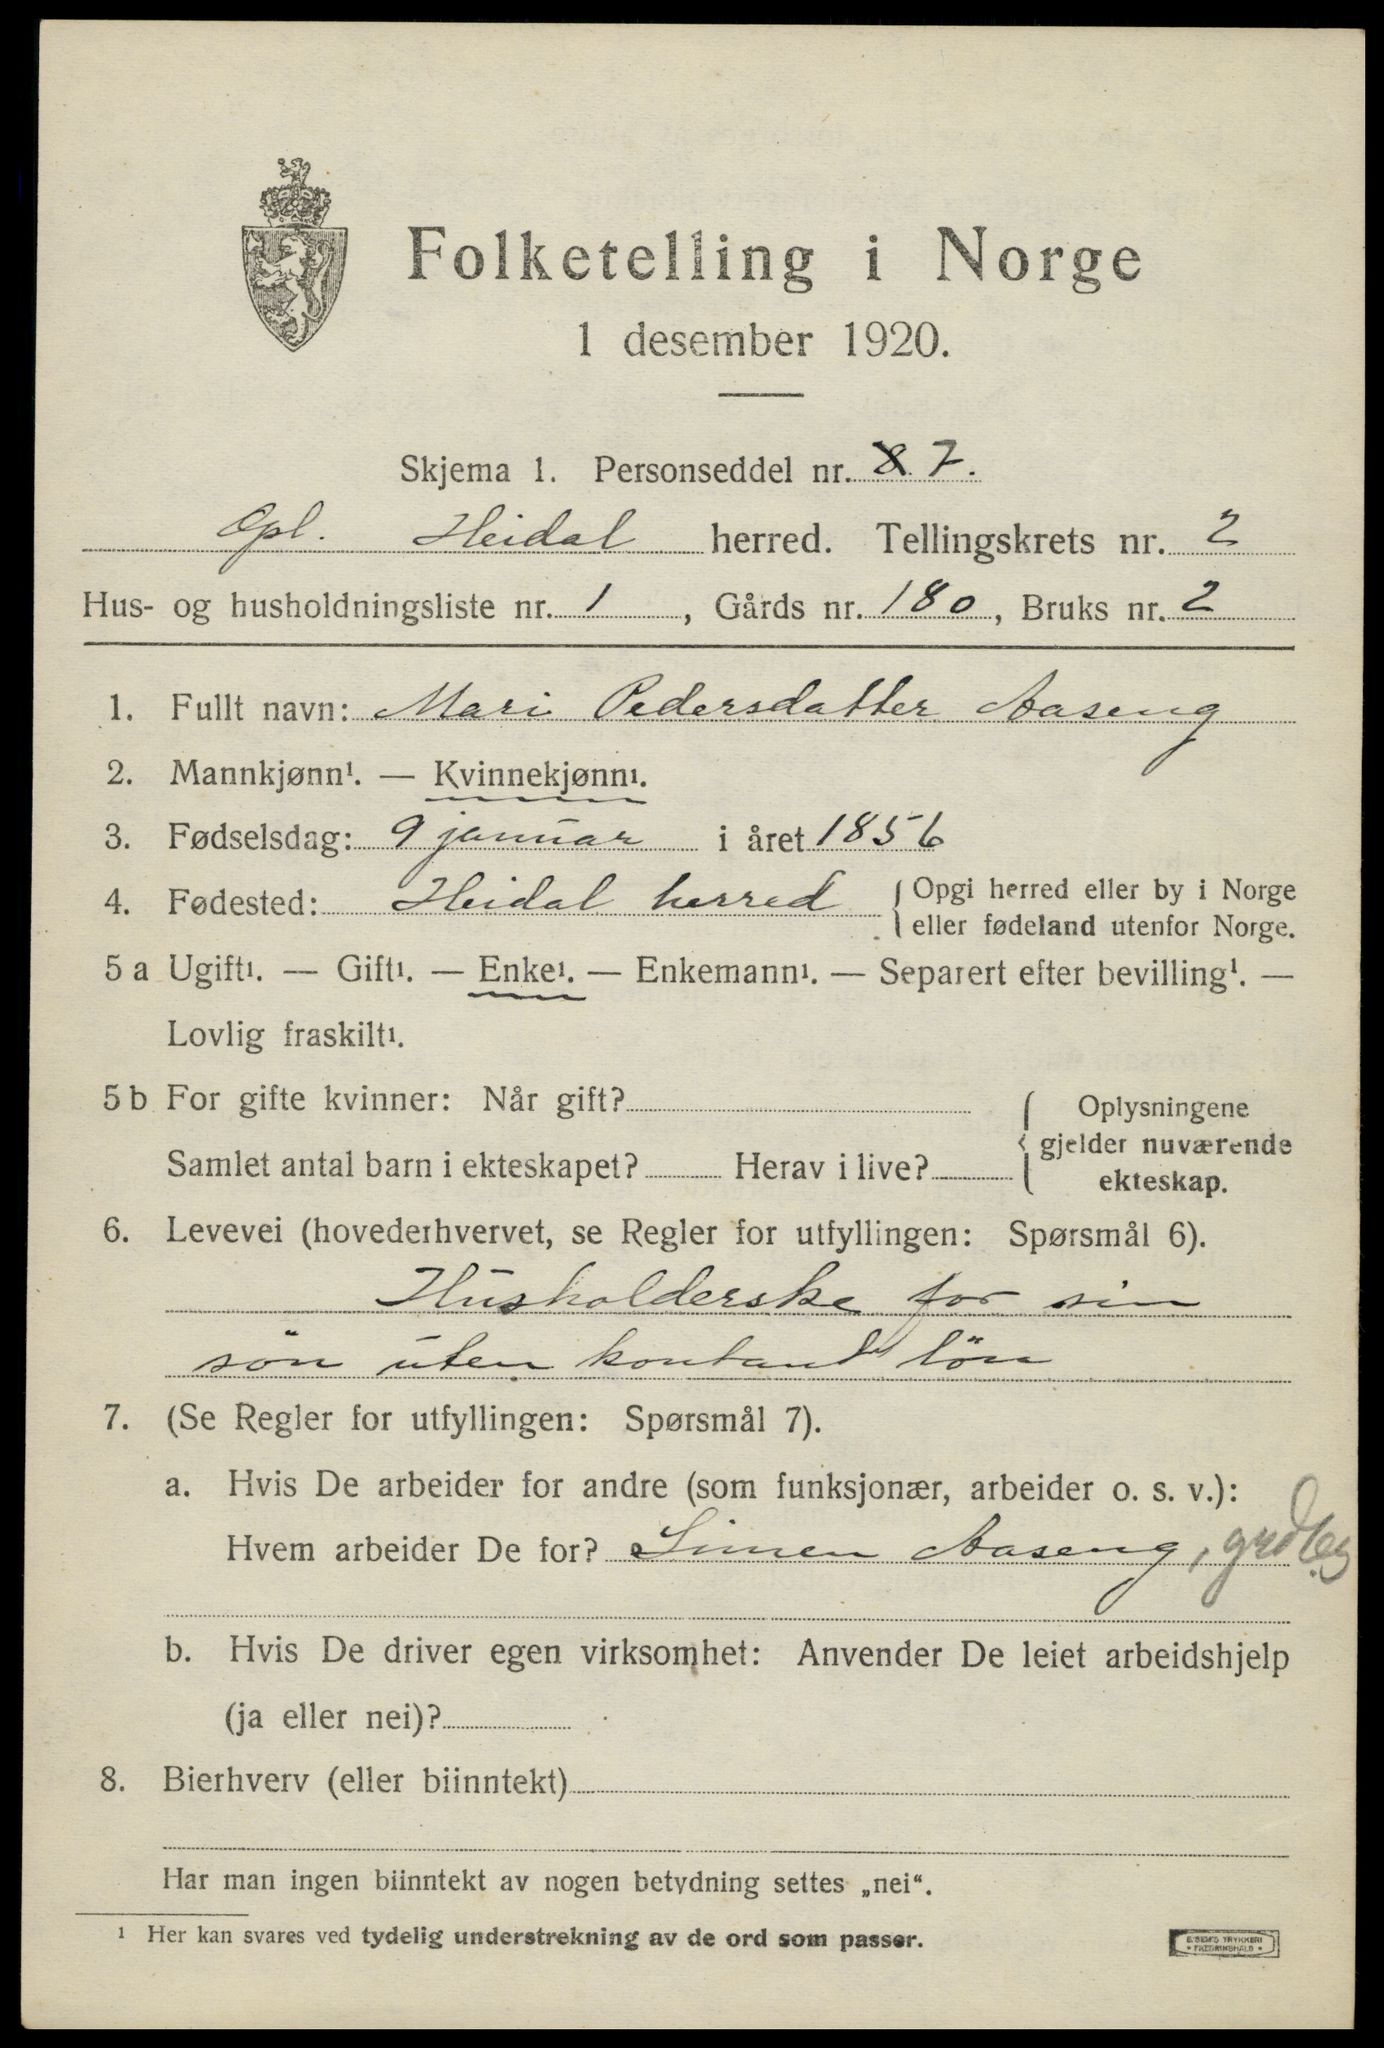 Folketelling i Norge
1 desember 1920.
Skjema 1. Personseddel nr. 8 7.
Opl. Heidal herred. Tellingskrets nr. 2
Hus- og husholdningsliste nr. 1, Gårds nr. 180, Bruks nr. 2
1. Fullt navn: Mari Pedersdatter Aaseng
2. Mannkjønn¹. — Kvinnekjønn¹.
3. Fødselsdag: 9 januar i året 1856
4. Fødested: Heidal herred { Opgi herred eller by i Norge
eller fødeland utenfor Norge.
5 a Ugift¹. — Gift¹. — Enke¹. — Enkemann¹. — Separert efter bevilling¹. —
Lovlig fraskilt¹.
5 b For gifte kvinner: Når gift? { Oplysningene
Samlet antal barn i ekteskapet? Herav i live? gjelder nuværende
ekteskap.
6. Levevei (hovederhvervet, se Regler for utfyllingen: Spørsmål 6).
Husholderske for sin
sön uten kontant lön
7. (Se Regler for utfyllingen: Spørsmål 7).
a. Hvis De arbeider for andre (som funksjonær, arbeider o. s. v.):
Hvem arbeider De for? Simen Aaseng,
b. Hvis De driver egen virksomhet: Anvender De leiet arbeidshjelp
(ja eller nei)?
8. Bierhverv (eller biinntekt)
Har man ingen biinntekt av nogen betydning settes „nei“.
¹ Her kan svares ved tydelig understrekning av de ord som passer.